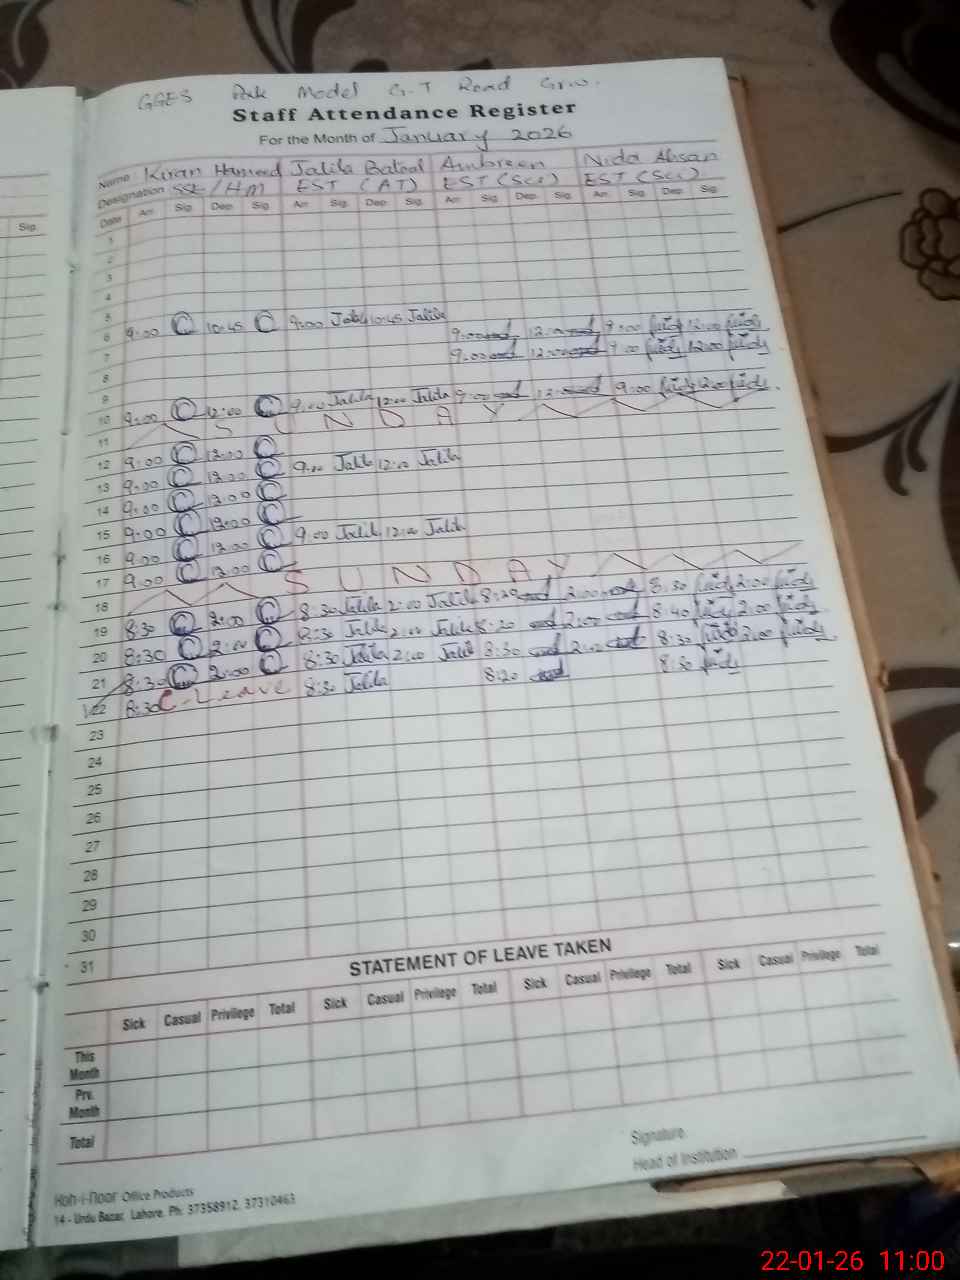 GGES Park Model G.T Road Grw.
Staff Attendance Register
For the Month of January 2026
Name Kiran Hameed Jalila Batool Ambreen Nida Ahsan
Designation SSE/HM EST (AT) EST (Sci) EST (Sci)
Date Arr Sig Dep Sig Arr Sig Dep Sig Arr Sig Dep Sig Arr Sig Dep Sig
Sig.
1
2
3
4
5
6 9:00 10:45 9:00 Jalila 10:45 Jalila 9:00 12:00 9:00 12:00
7 9:00 12:00 9:00 12:00
8
9
10 9:00 12:00 9:00 Jalila 12:00 Jalila 9:00 12:00 9:00 12:00
11 SUNDAY
12 9:00 12:00
13 9:00 12:00 9:00 Jalila 12:00 Jalila
14 9:00 12:00
15 9:00 12:00
16 9:00 12:00 9:00 Jalila 12:00 Jalila
17 9:00 12:00
18 SUNDAY
19 8:30 2:00 8:30 Jalila 2:00 Jalila 8:20 2:00 8:30 2:00
20 8:30 2:00 8:30 Jalila 2:00 Jalila 8:20 2:00 8:40 2:00
21 8:30 2:00 8:30 Jalila 2:00 Jalila 8:30 2:00 8:30 2:00
22 8:30 C-Leave 8:30 Jalila 8:20 8:30
23
24
25
26
27
28
29
30
31
STATEMENT OF LEAVE TAKEN
Sick Casual Privilege Total Sick Casual Privilege Total Sick Casual Privilege Total Sick Casual Privilege Total
This
Month
Prv.
Month
Total
Signature
Head of Institution
Koh-i-noor Office Products
14 - Urdu Bazar, Lahore. Ph: 37358912, 37310463
22-01-26 11:00